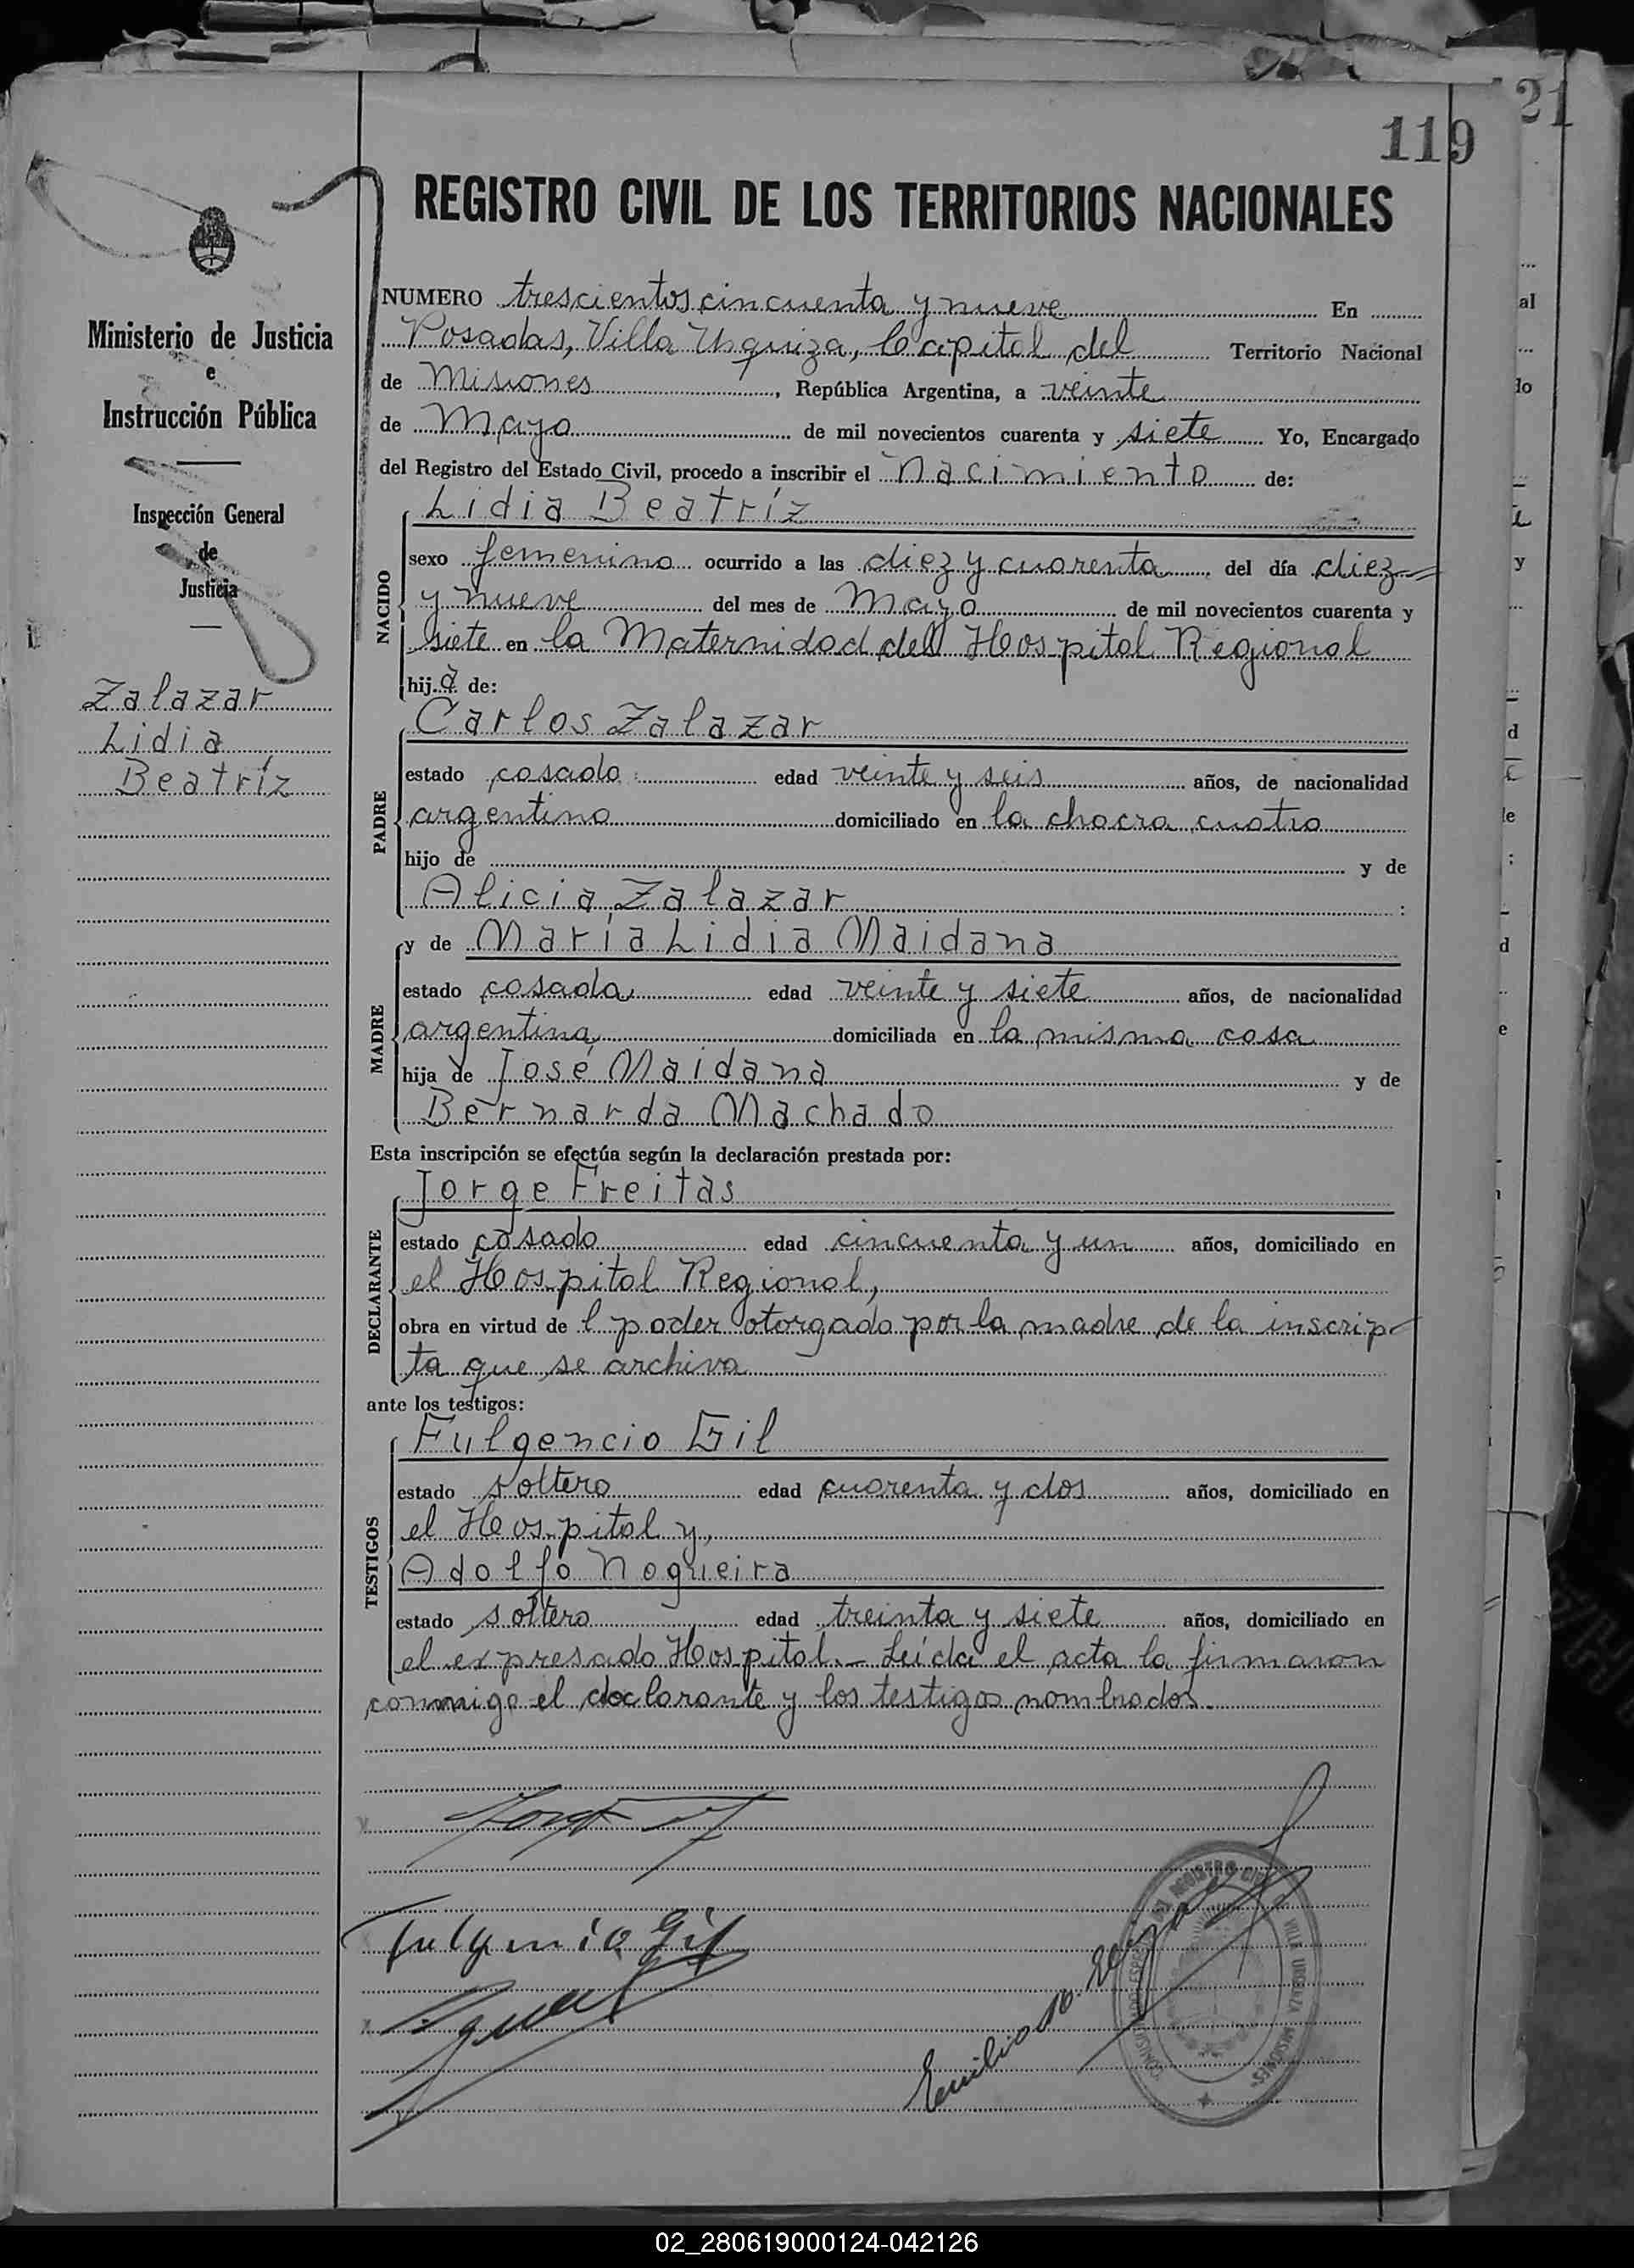 119
21
REGISTRO CIVIL DE LOS TERRITORIOS NACIONALES
Ministerio de Justicia
e
Instrucción Pública
Inspección General
de
Justicia
Zalazar
Lidia
Beatríz
NUMERO trescientos cincuenta y nueve En
Posadas, Villa Urquiza, Capital del Territorio Nacional
de Misiones, República Argentina, a veinte
de Mayo de mil novecientos cuarenta y siete Yo, Encargado
del Registro del Estado Civil, procedo a inscribir el nacimiento de:
NACIDO
Lidia Beatríz
sexo femenino ocurrido a las diez y cuarenta del día diez
y nueve del mes de Mayo de mil novecientos cuarenta y
siete en la Maternidad del Hospital Regional
hija de:
PADRE
Carlos Zalazar
estado casado edad veinte y seis años, de nacionalidad
argentino domiciliado en la chacra cuatro
hijo de y de
Alicia Zalazar :
MADRE
y de María Lidia Maidana
estado casada edad veinte y siete años, de nacionalidad
argentina domiciliada en la misma casa
hija de José Maidana y de
Bernarda Machado
Esta inscripción se efectúa según la declaración prestada por:
DECLARANTE
Jorge Freitas
estado casado edad cincuenta y un años, domiciliado en
el Hospital Regional,
obra en virtud de l poder otorgado por la madre de la inscrip-
ta que se archiva
ante los testigos:
TESTIGOS
Fulgencio Gil
estado soltero edad cuarenta y dos años, domiciliado en
el Hospital y,
Adolfo Nogueira
estado soltero edad treinta y siete años, domiciliado en
el expresado Hospital.- Leída el acta la firmaron
conmigo el declarante y los testigos nombrados.
Fulgencio Gil
Emilio
REGISTRO CIVIL
VILLA URQUIZA MISIONES
02_280619000124-042126